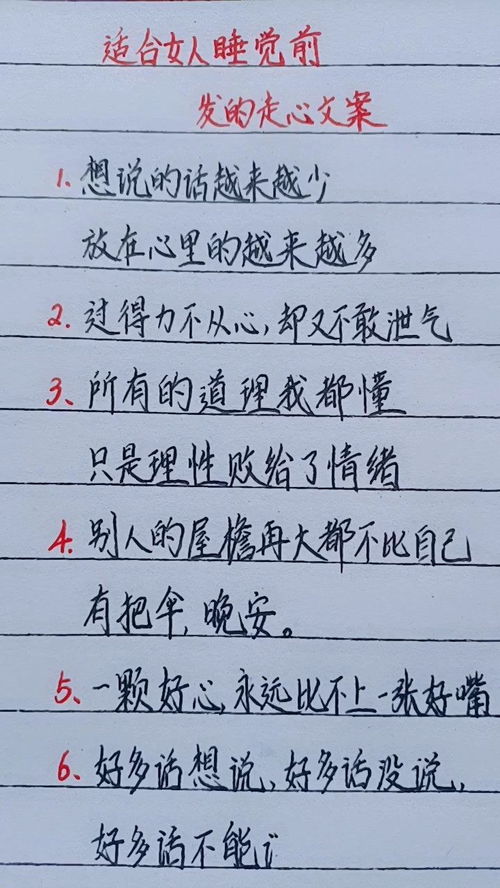 适合女人睡觉前
发的走心文案
1. 想说的话越来越少
放在心里的越来越多
2. 过得力不从心,却又不敢泄气
3、所有的道理我都懂
只是理性败给了情绪
4. 别人的屋檐再大都不比自己
有把伞,晚安。
5、一颗好心,永远比不上一张好嘴
6、好多话想说,好多话没说,
好多话不能